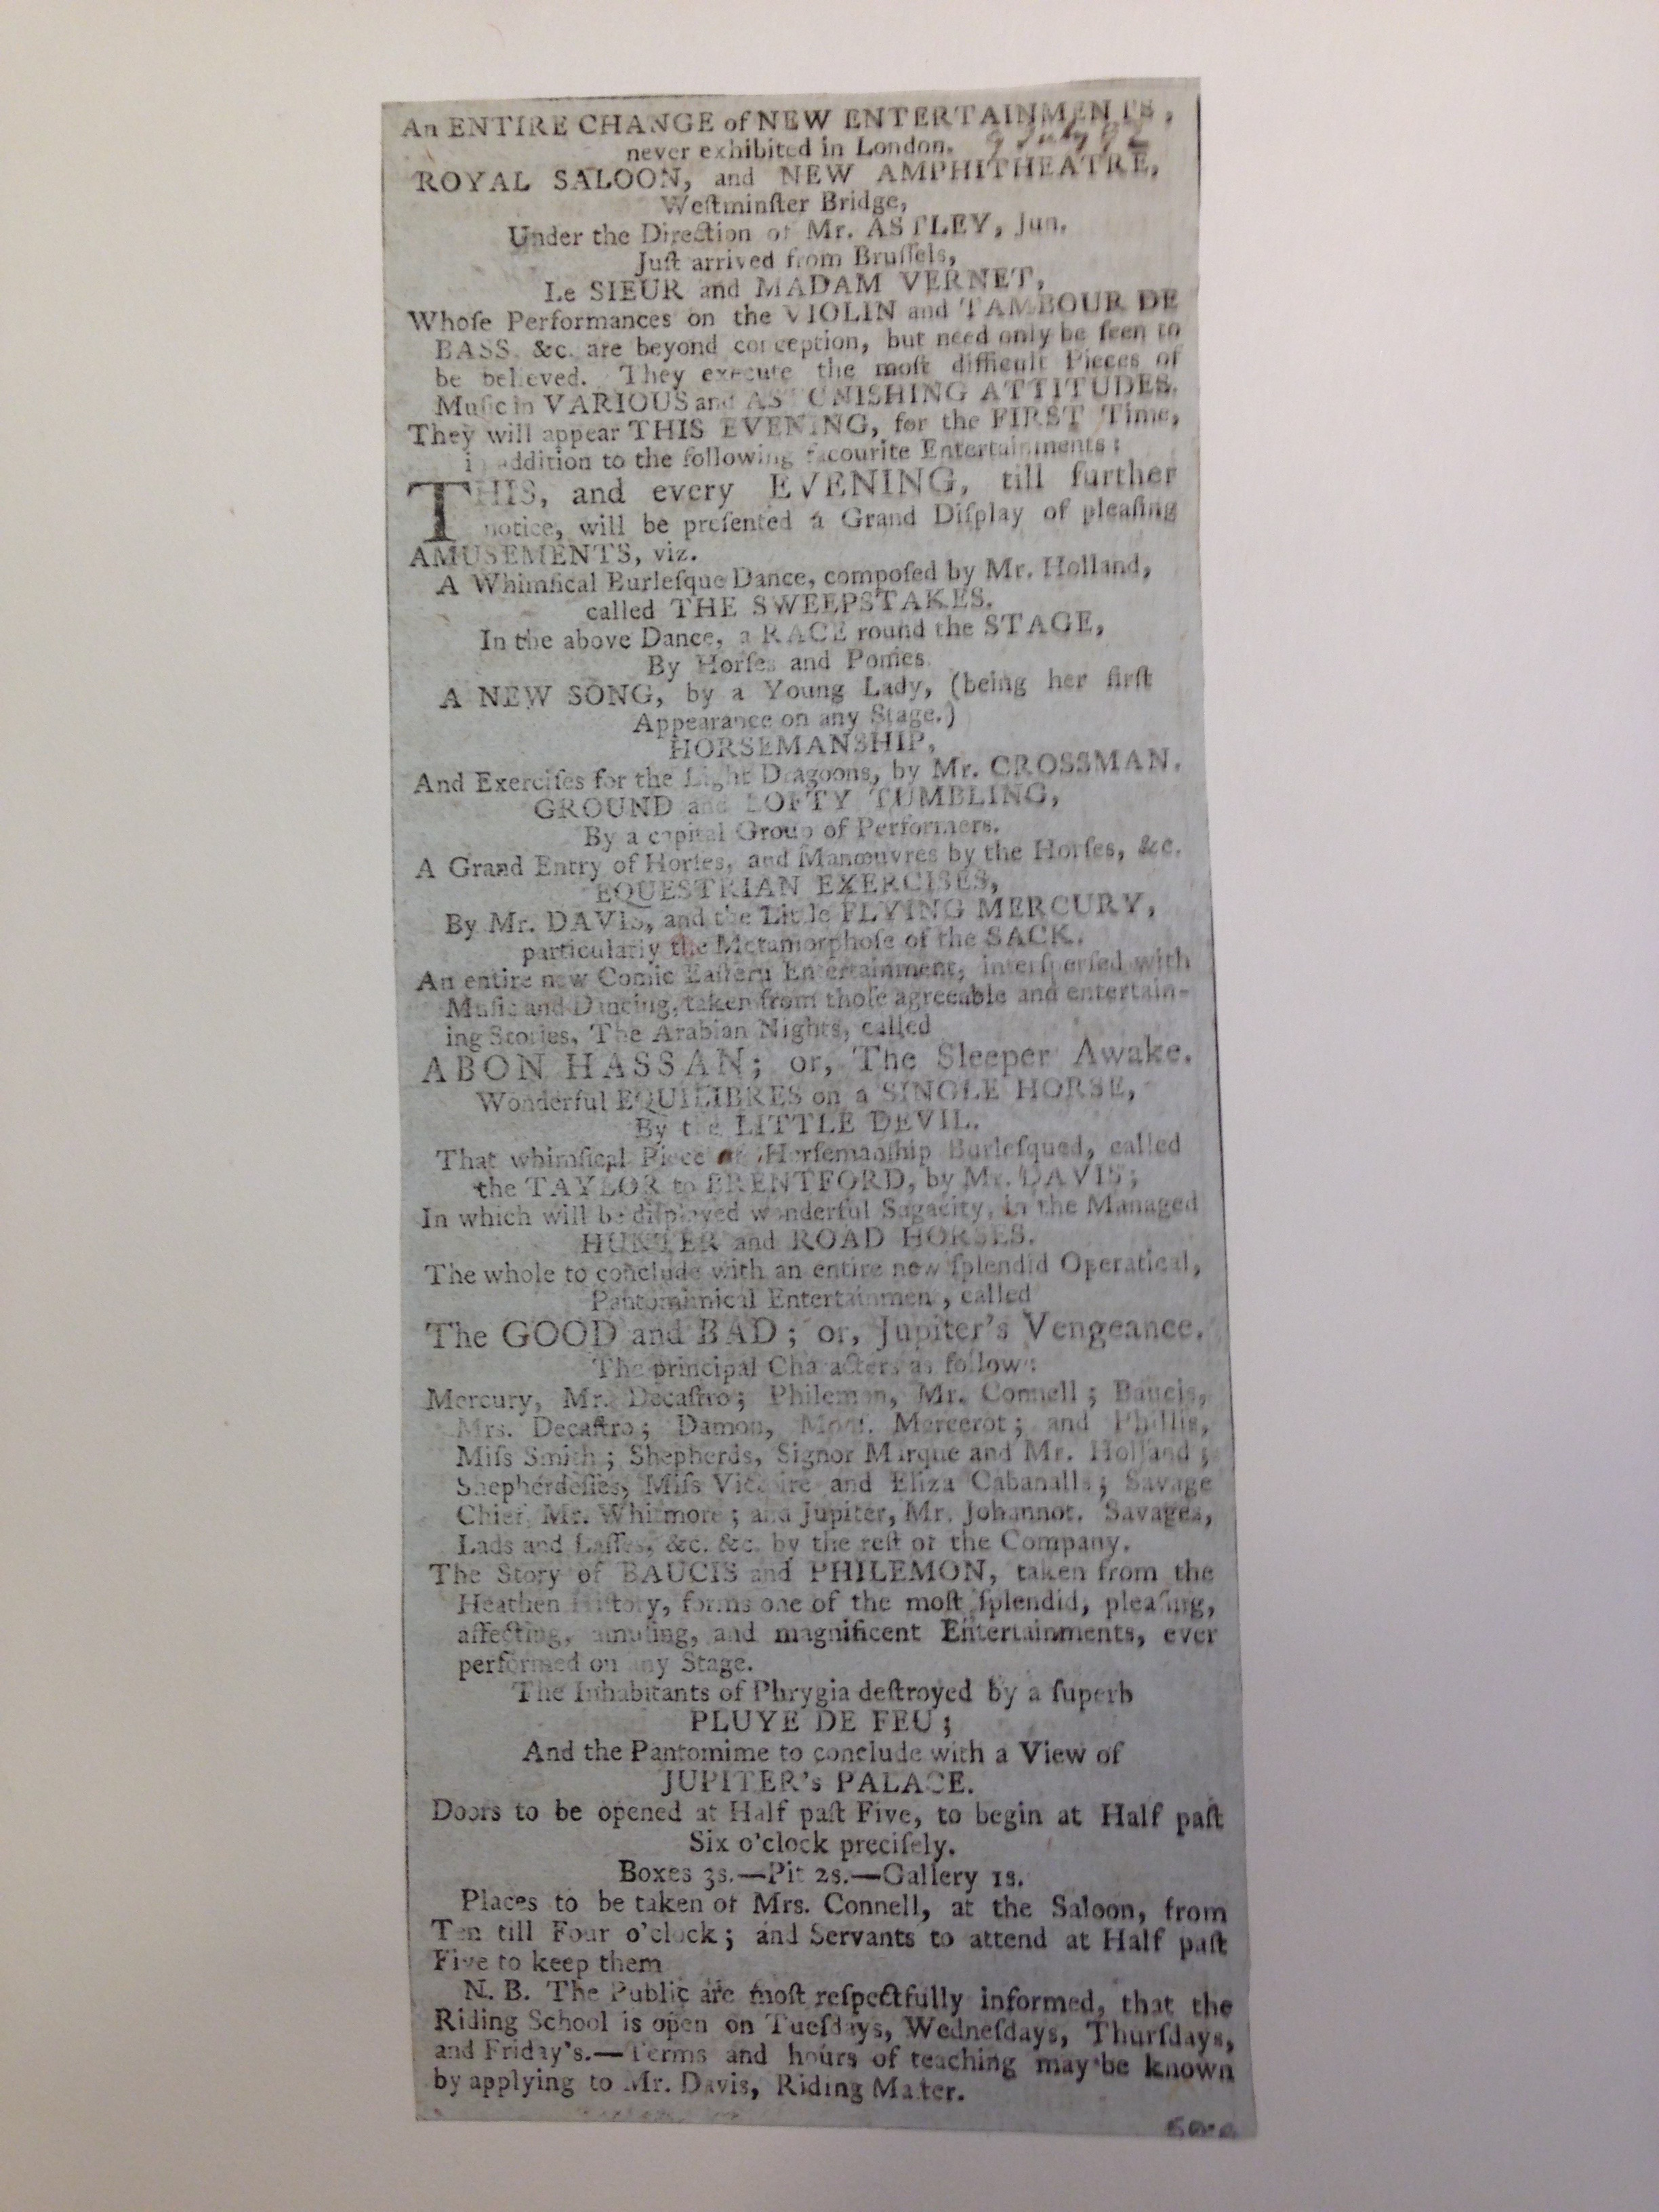 An ENTIRE CHANGE of NEW ENTERTAINMENTS,
never exhibited in London. 9 July 92
ROYAL SALOON, and NEW AMPHITHEATRE,
Weſtminſter Bridge,
Under the Direction of Mr. ASTLEY, Jun.
Juſt arrived from Bruſſels,
Le SIEUR and MADAM VERNET,
Whoſe Performances on the VIOLIN and TAMBOUR DE
BASS, &c. are beyond conception, but need only be ſeen to
be believed. They execute the moſt difficult Pieces of
Muſic in VARIOUS and ASTONISHING ATTITUDES.
They will appear THIS EVENING, for the FIRST Time,
in addition to the following facourite Entertainments:
THIS, and every EVENING, till further
notice, will be preſented a Grand Diſplay of pleaſing
AMUSEMENTS, viz.
A Whimſical Burleſque Dance, compoſed by Mr. Holland,
called THE SWEEPSTAKES.
In the above Dance, a RACE round the STAGE,
By Horſes and Ponies.
A NEW SONG, by a Young Lady, (being her firſt
Appearance on any Stage.)
HORSEMANSHIP,
And Exerciſes for the Light Dragoons, by Mr. CROSSMAN.
GROUND and LOFTY TUMBLING,
By a capital Group of Performers.
A Grand Entry of Horſes, and Manœuvres by the Horſes, &c.
EQUESTRIAN EXERCISES,
By Mr. DAVIS, and the Little FLYING MERCURY,
particularly the Metamorphoſe of the SACK.
An entire new Comic Eaſtern Entertainment, interſperſed with
Muſic and Dancing, taken from thoſe agreeable and entertain-
ing Stories, The Arabian Nights, called
ABON HASSAN; or, The Sleeper Awake.
Wonderful EQUILIBRES on a SINGLE HORSE,
By the LITTLE DEVIL.
That whimſical Piece of Horſemanſhip Burleſqued, called
the TAYLOR to BRENTFORD, by Mr. DAVIS;
In which will be diſplayed wonderful Sagacity, in the Managed
HUNTER and ROAD HORSES.
The whole to conclude with an entire new ſplendid Operatical,
Pantomimical Entertainment, called
The GOOD and BAD; or, Jupiter's Vengeance.
The principal Characters as follow:
Mercury, Mr. Decaſtro; Philemon, Mr. Connell; Baucis,
Mrs. Decaſtro; Damon, Monſ. Mercerot; and Phillis,
Miſs Smith; Shepherds, Signor Marque and Mr. Holland;
Shepherdeſſes, Miſs Victoire and Eliza Cabanalls; Savage
Chief, Mr. Whitmore; and Jupiter, Mr. Johannot. Savages,
Lads and Laſſes, &c. &c. by the reſt of the Company.
The Story of BAUCIS and PHILEMON, taken from the
Heathen Hiſtory, forms one of the moſt ſplendid, pleaſing,
affecting, amuſing, and magnificent Entertainments, ever
performed on any Stage.
The Inhabitants of Phrygia deſtroyed by a ſuperb
PLUYE DE FEU;
And the Pantomime to conclude with a View of
JUPITER's PALACE.
Doors to be opened at Half paſt Five, to begin at Half paſt
Six o'clock preciſely.
Boxes 3s.—Pit 2s.—Gallery 1s.
Places to be taken of Mrs. Connell, at the Saloon, from
Ten till Four o'clock; and Servants to attend at Half paſt
Five to keep them
N. B. The Public are moſt reſpectfully informed, that the
Riding School is open on Tueſdays, Wedneſdays, Thurſdays,
and Friday's.—Terms and hours of teaching may be known
by applying to Mr. Davis, Riding Maſter.